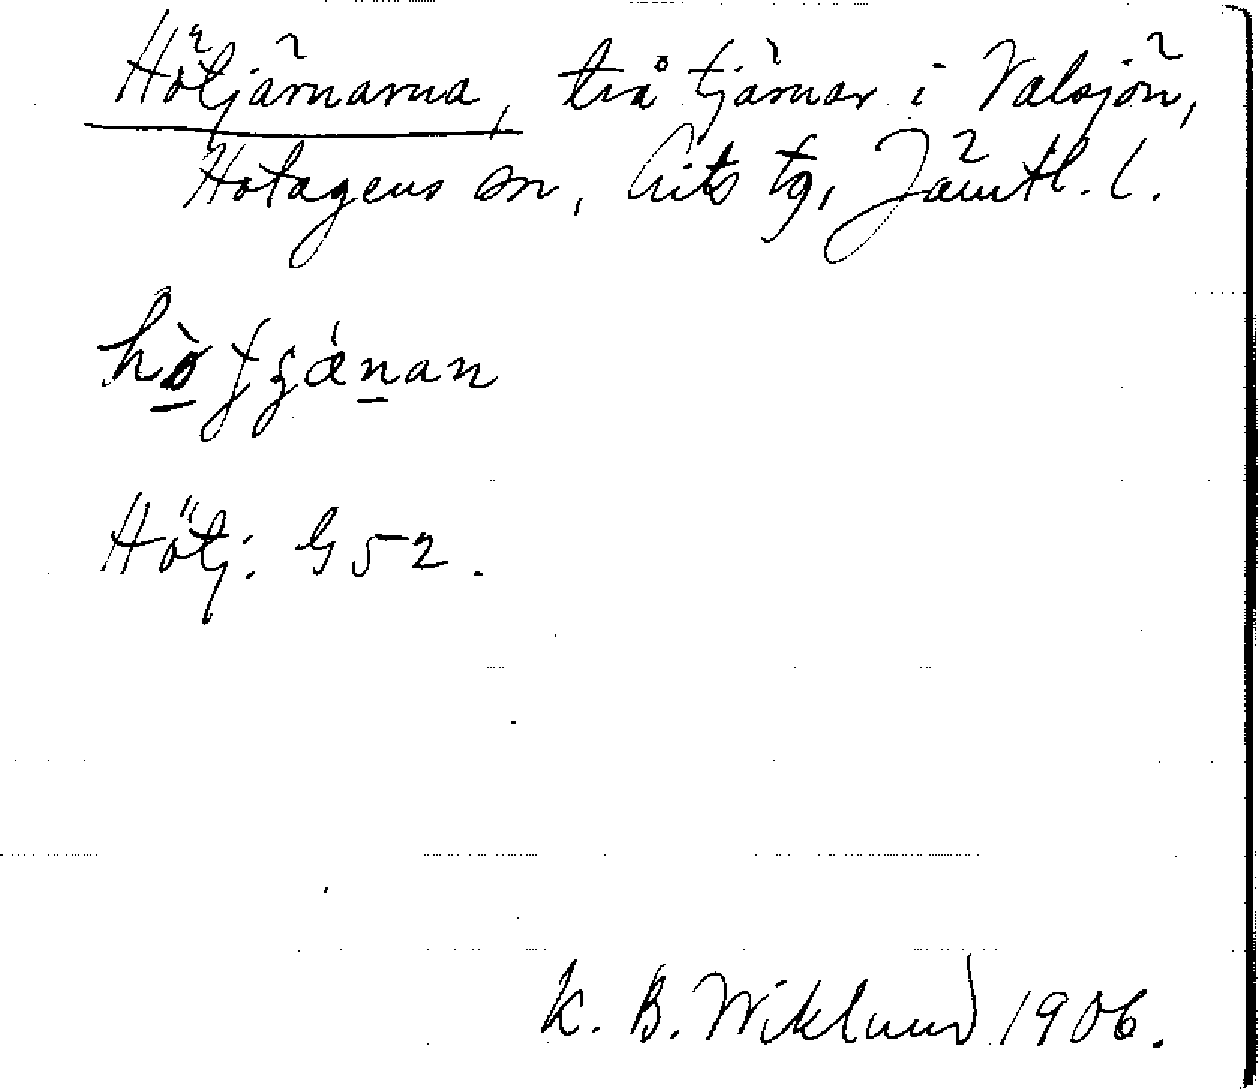 Hötjärnarna, två tjärnar i Valsjön,
Hotagens sn, Lits tg, Jämtl. l.
Hötj: G 52.
K. B. Wiklund 1906.